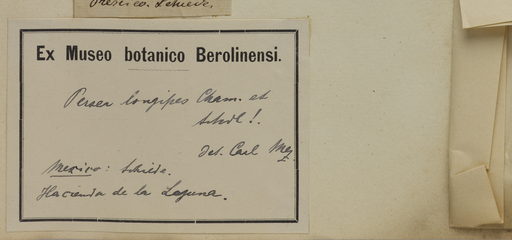 Mexico. Schiede.
Ex Museo botanico Berolinensi.
Persea longipes Cham. et
Schdl!.
det. Carl Mez.
Mexico: Schiede.
Hacienda de la Laguna.